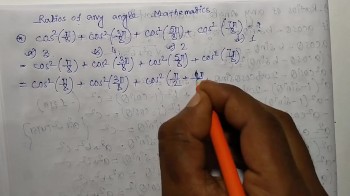 Ratios of any angle Mathematics
cos²(π/8) + cos²(3π/8) + cos²(5π/8) + cos²(7π/8) = ?
a) 3 b) 4 c) 2
= cos²(π/8) + cos²(3π/8) + cos²(5π/8) + cos²(7π/8)
= cos²(π/8) + cos²(3π/8) + cos²(π/2 +